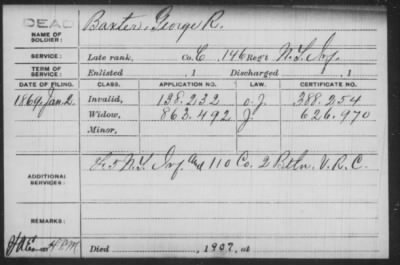 DEAD
NAME OF SOLDIER: Baxter, George R.
SERVICE: Late rank, Co. C, 146 Reg't N.Y. Inf.
TERM OF SERVICE: Enlisted , 1 Discharged , 1
DATE OF FILING. CLASS. APPLICATION NO. LAW. CERTIFICATE NO.
1869, Jan. 2. Invalid, 138.232 o.J. 388.254
Widow, 863.492 J. 626.970
Minor,
ADDITIONAL SERVICES: 5 N.Y. Inf. and 110 Co. 2 Battn. V.R.C.
REMARKS:
Died , 1907, at